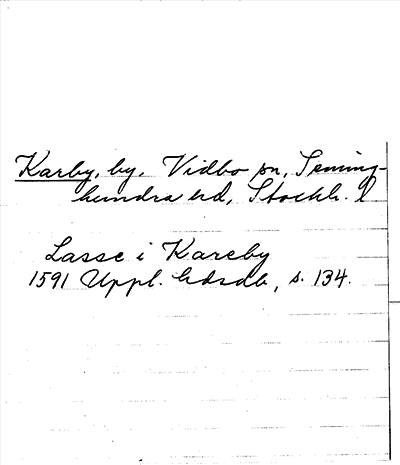 Karby, by, Vidbo sn, Seming-
hundra hd, Stockh. l
Lasse i Kareby
1591 Uppl. hdsdb, s. 134.